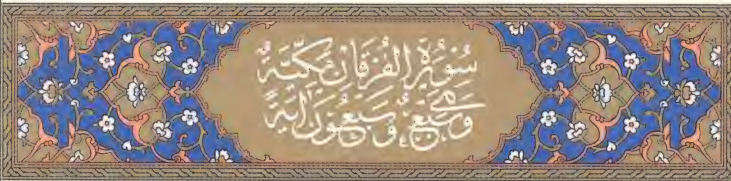 سُورَةُ الْفُرْقَانِ مَكِّيَّةٌ
وَهِيَ سَبْعٌ وَسَبْعُونَ آيَةً